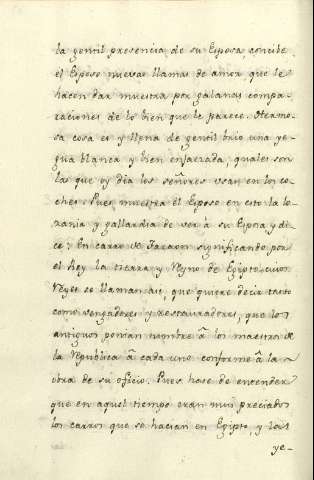 la gentil presencia de su Esposa, concibe
el Esposo nuevas llamas de amor, que le
hacen dar muestra por galanas compa-
raciones de lo bien que le parece. Hermo-
sa cosa es y llena de gentil brio una ye-
gua blanca y bien enjaezada, quales son
las que oy dia los señores usan en los co-
ches: Pues muestra el Esposo en esto la lo-
zania y gallardia de ver à su Esposa y di-
ce: En carro de Faraon significando por
el Rey la tierra y Reyno de Egipto, cuios
Reyes se llaman asi, que quiere decir tanto
como vengadores y restauradores, que los
antiguos ponian nombre à los maestros de
la Republica à cada uno conforme à la
obra de su oficio. Pues hase de entender
que en aquel tiempo eran mui preciados
los carros que se hacian en Egipto, y las
ye-